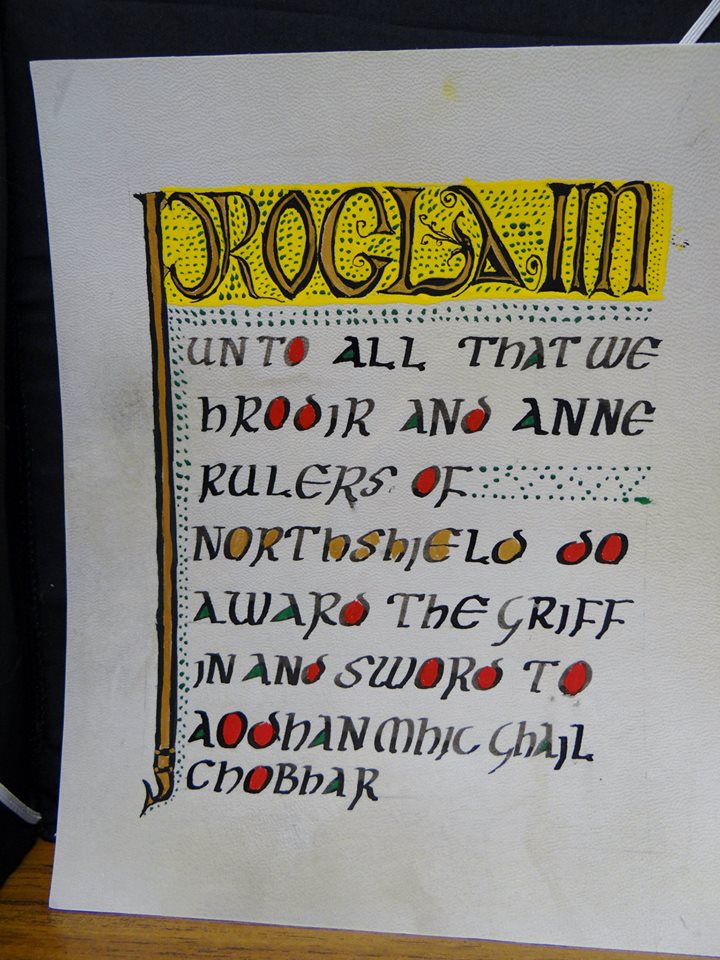 PROCLAIM
UNTO ALL THAT WE
hRODIR AND ANNE
RULERS OF
NORThShIELD DO
AWARD ThE GRIFF
IN AND SWORD TO
AODhAN MhIC GhAIL
ChOBhAR